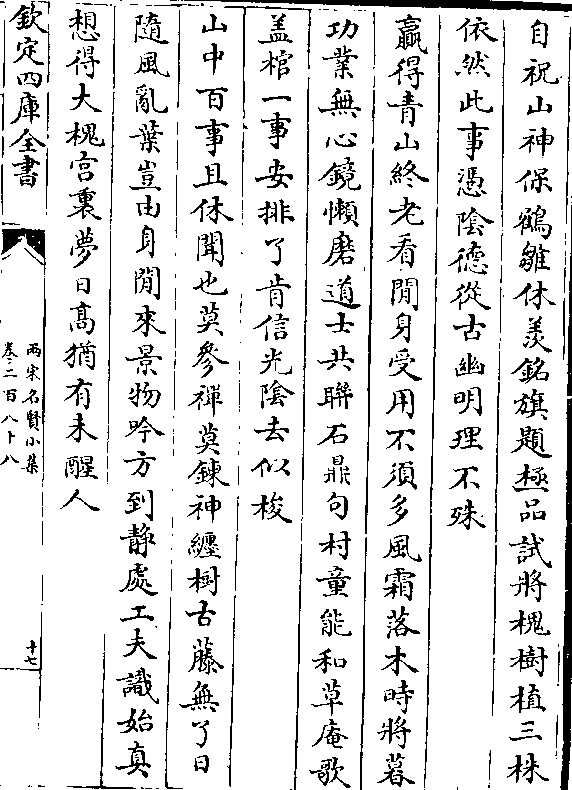 自祝山神保鶴雛休羡銘旗題極品試將槐樹植三株
依然此事憑陰德從古幽明理不殊
贏得青山終老看閒身受用不須多風霜落木時將暮
功業無心鏡懶磨道士共聯石鼎句村童能和草庵歌
盖棺一事安排了肯信光陰去似梭
山中百事且休聞也莫參禪莫鍊神纏樹古藤無了日
隨風亂葉豈由身閒來景物吟方到靜處工夫識始真
想得大槐宮裏夢日髙猶有未醒人
欽定四庫全書
兩宋名賢小集
卷二百八十八
十七